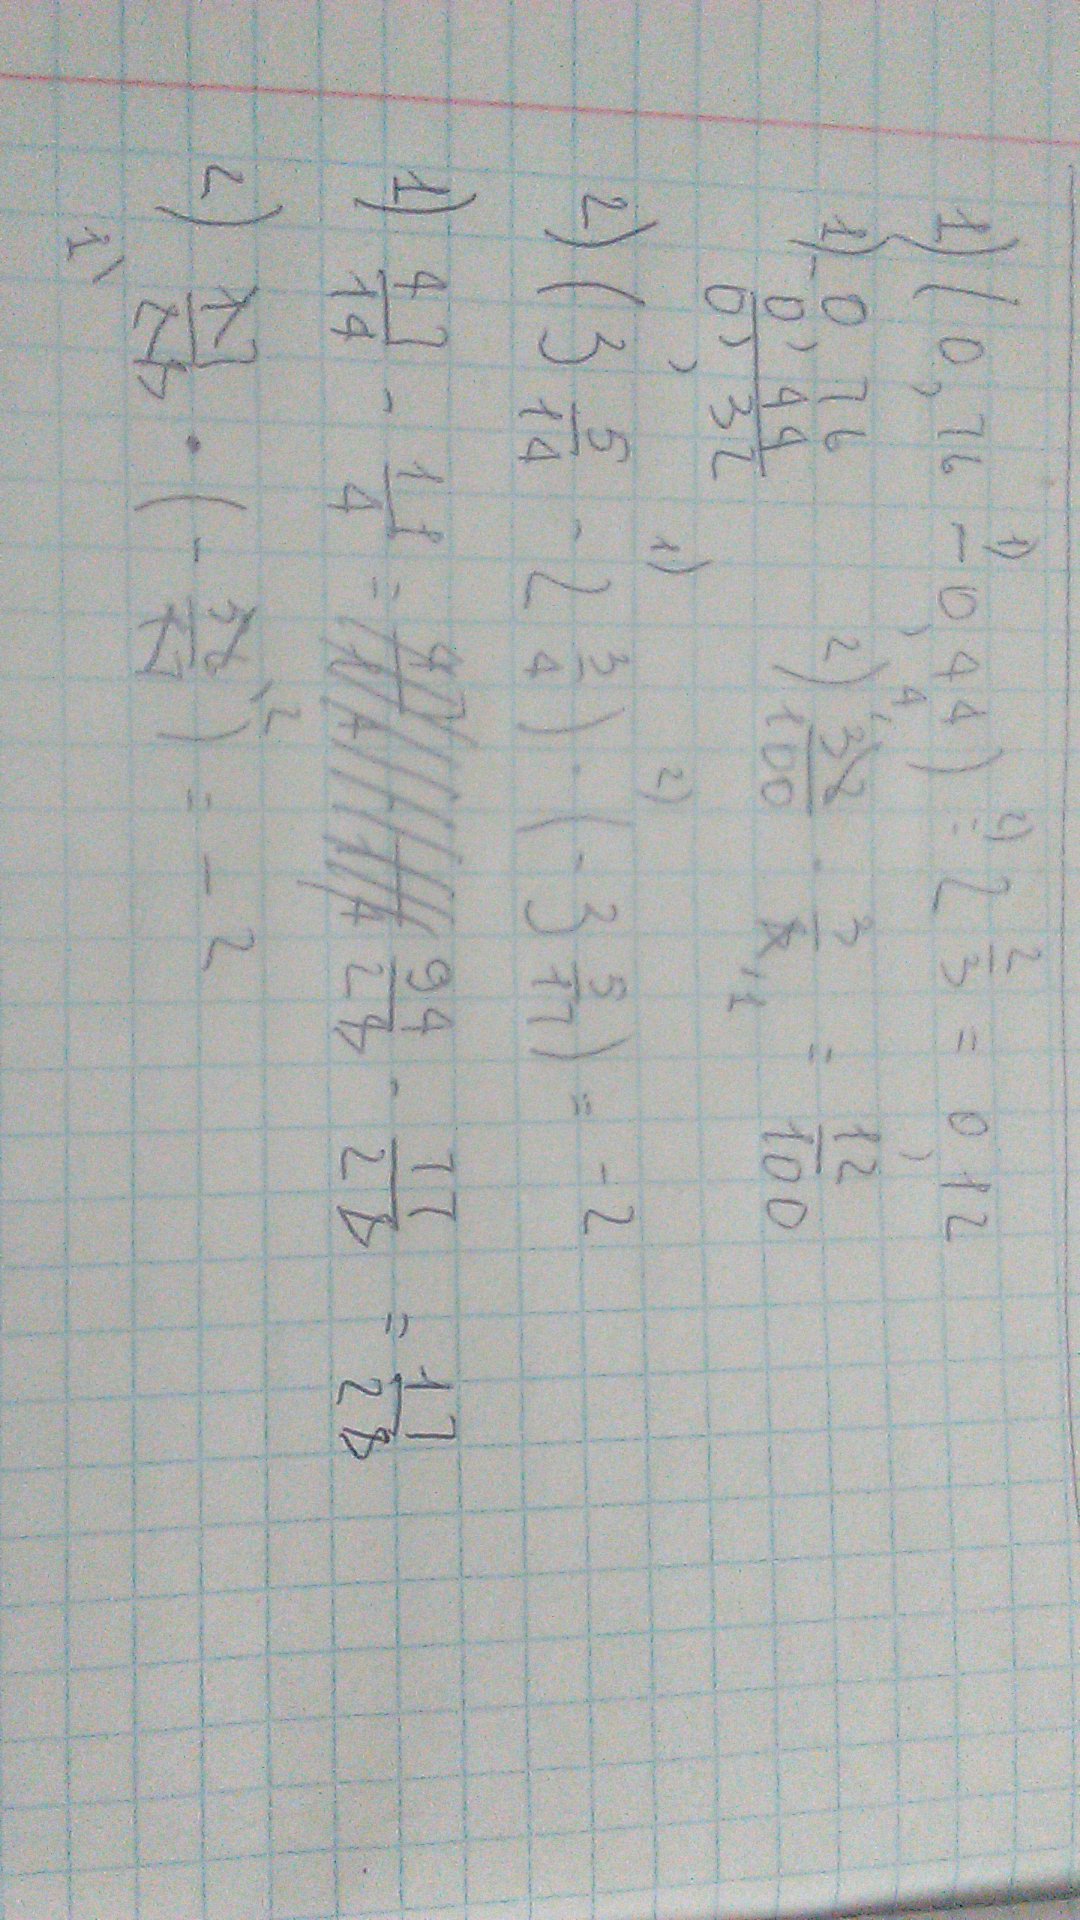 1) (0,76 - 0,44) : 2 2/3 = 0,12
1) 0,76 - 0,44 = 0,32
2) 32/100 · 3/8 = 12/100
2) (3 5/14 - 2 3/4) · (-3 5/17) = -2
1) 47/14 - 11/4 = 94/28 - 77/28 = 17/28
2) 17/28 · (-56/17) = -2